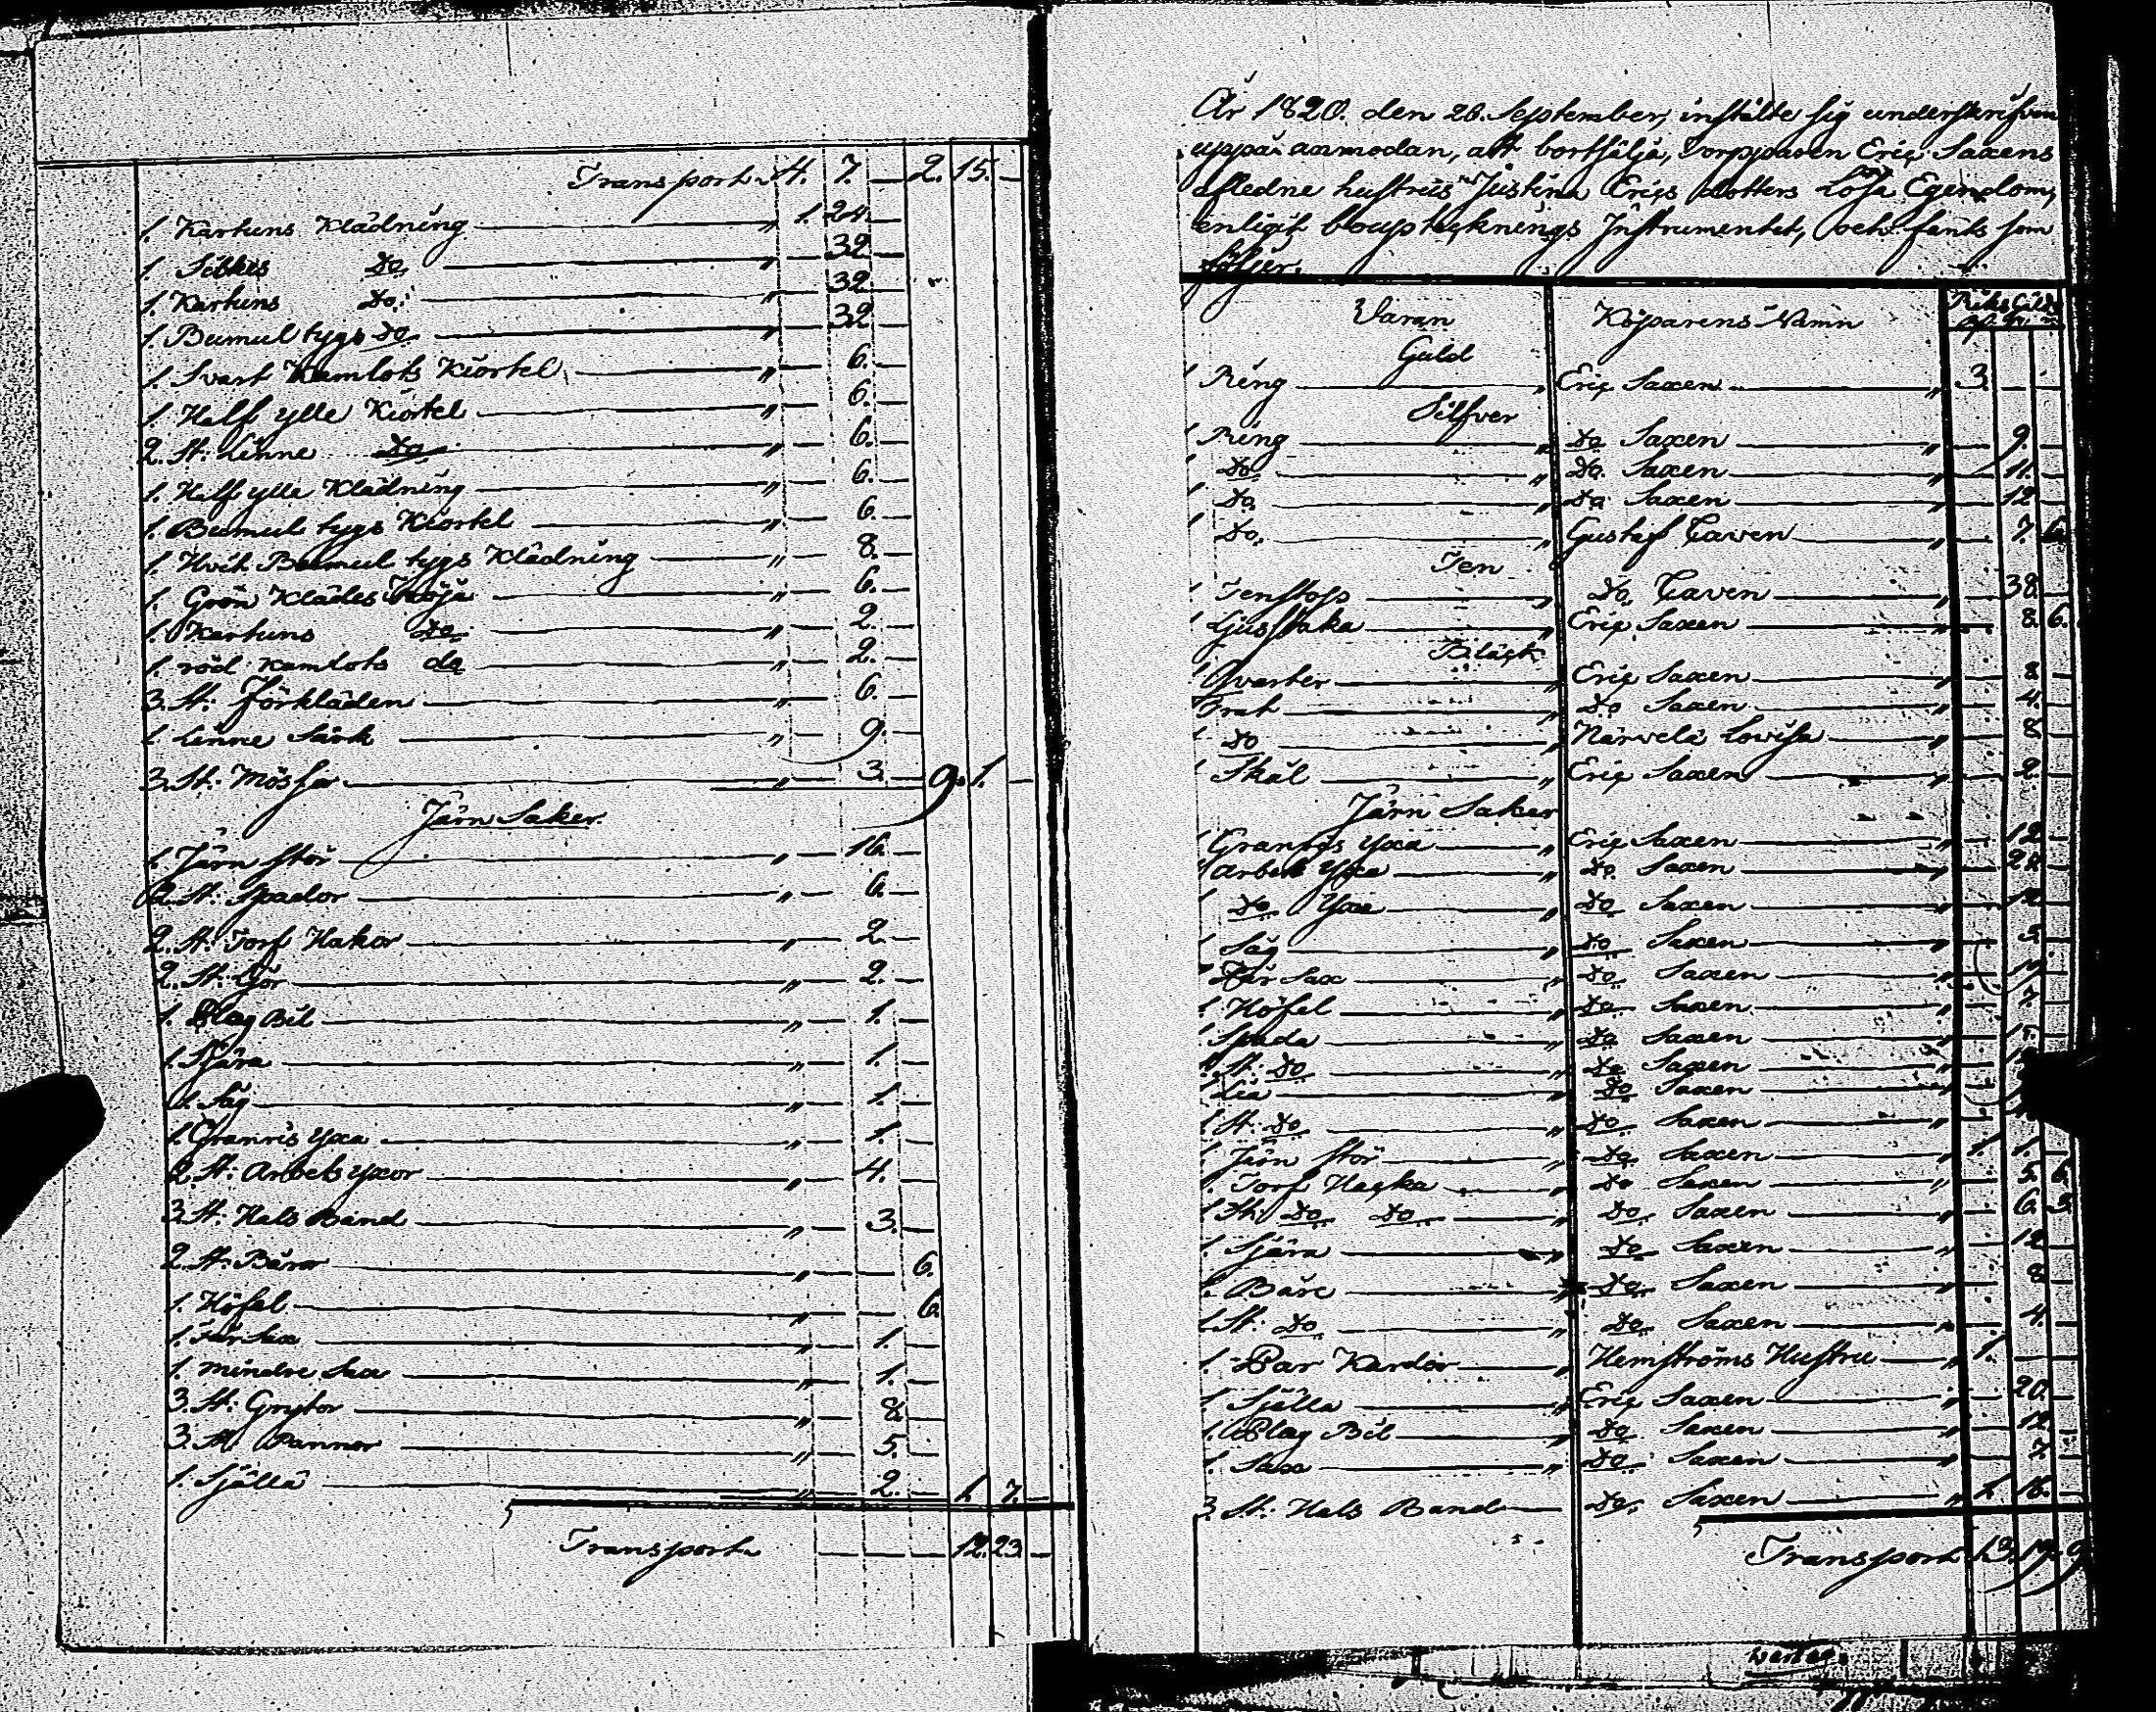 Transport 4. 7. — 2. 15. —
1. Kartuns Klädning — " 1. 24. —
1. Sitkes Do — " — 32 —
1. Kartuns Do: — " — 32 —
1. Bumuls tygs Do — " — 32 —
1. Svart Kamlots Kiortel — " — 6. —
1. Half ylle Kiortel — " — 6. —
2. St: Linne Do — " — 6. —
1. Half ylle Klädning — " — 6. —
1. Bumuls tygs Kiortel — " — 6. —
1. Hvit Bumuls tygs Klädning — " — 8. —
1. Grön Klädes Tröja — " — 6. —
1. Kartuns Do — " — 2. —
1. röd Kamlots do — " — 2. —
3. St: Förkläden — " — 6. —
1. Linne Särk — " — 9. —
3. St: Mössor — " — 3. — 9. 1. —
Järn Saker
1. Järn Stör — " — 16. —
2. St: Spador — " — 6. —
2. St: Torf Hakor — " — 2. —
2. St: Liör — " — 2. —
1. Plog Bil — " — 1. —
1. Skjära — " — 1. —
1. Såg — " — 1. —
1. Granris Yxa — " — 1. —
2. St: Arbets yxor — " — 4. —
3. St: Hals Band — " — 3. —
2. St: Bäror — " — — 6.
1. Höfel — " — — 6.
1. Får Sax — " — 1. —
1. mindre Sax — " — 1. —
3. St: Grytor — " — 8. —
3. St: Pannor — " — 5. —
1. Själlå — " — 2. — 1. 7. —
Transport — — — 12. 23. —
År 1820. den 26. September, instälte sig underskrifven
uppå anmodan, att bortsälja, Torpparen Eric Saxens
afledne hustrus Justina Erics dotters Lösa Egendom,
enligit boupteckninigs Instrumentet, och fants som
följer.
Varan Köparens Namn
Guld
1 Ring — " Eric Saxen — " 3. — —
Silfver
1 Ring — " Do Saxen — " 9. —
1 Do — " Do Saxen — " 11. —
1 Do — " Do Saxen — " 12 —
1 Do. — " Gustaf Caven — " 7. 6.
Ten
1 Tenstop — " Do Caven — " 38. —
1 Ljusstake — " Eric Saxen — " 8. 6.
Bläck
1 Qvarter — " Eric Saxen — " 8 —
Do Saxen — " 4. —
1 Do — " Närvelä Lovisa — " 8 —
1 Skål — " Eric Saxen — " 2. —
Järn Saker
1 Granris yxa — " Eric Saxen — " 12. —
1 Arbets Yxa — " Do Saxen — " 24. —
1 Do Yxa — " Do Saxen — "
1 Såg — " Do Saxen — " 5.
1 Får Sax — " Do Saxen — "
1 Höfel — " Do Saxen — " 7
1 Spada — " Do Saxen — " 15.
1. St: Do — " Do Saxen — "
1 Lia — " Do Saxen — "
1 St: Do — " Do Saxen — "
1 Järn Stör — " Do Saxen — " 1. 1. —
1. Torf Hacka — " Do Saxen — " 5. 6.
1 St: Do Do — " Do Saxen — " 6. 3.
1. Sjära — " Do Saxen — " 12. —
1. Båre — " Do Saxen — " 8 —
1 St: Do — " Do Saxen — " 4. —
1. Par Kardor — " Hemströms Hustru — " 1. — —
1 Själla — " Eric Saxen — " 20. —
1. Plog Bil — " Do Saxen — " 12. —
1. Sax — " Do Saxen — " 7. —
3. St: Hals Band — Do Saxen — " 1. 16. —
Transport 13. 19. 9.